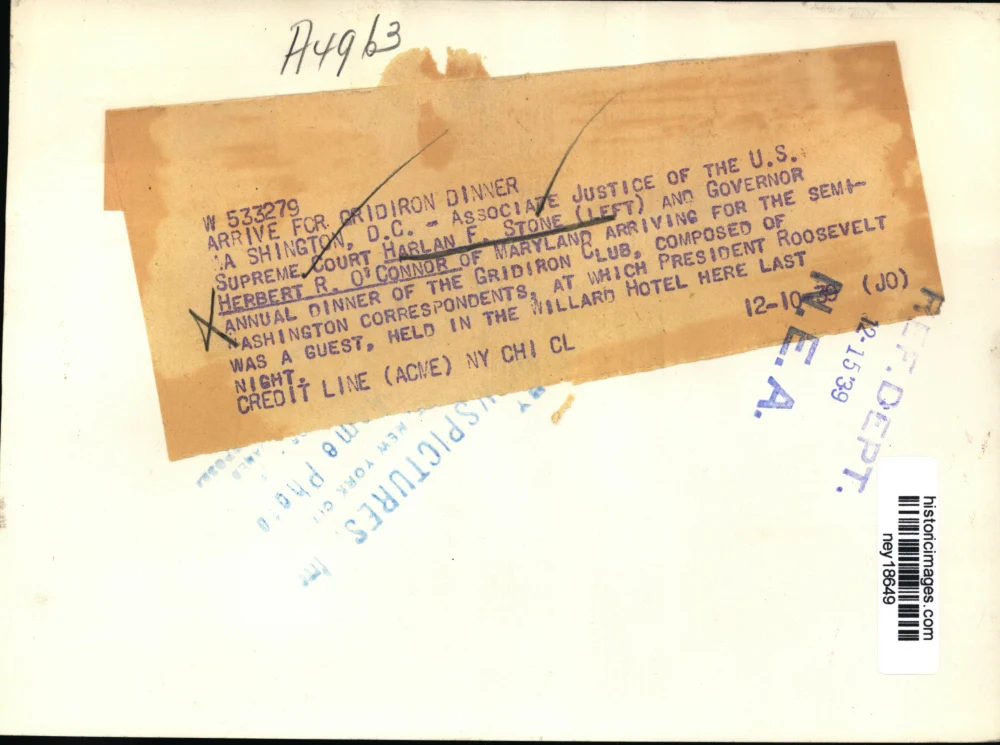 A4963
W 533279
ARRIVE FOR GRIDIRON DINNER
WASHINGTON, D.C. - ASSOCIATE JUSTICE OF THE U.S.
SUPREME COURT HARLAN F. STONE (LEFT) AND GOVERNOR
HERBERT R. O'CONNOR OF MARYLAND ARRIVING FOR THE SEMI-
ANNUAL DINNER OF THE GRIDIRON CLUB, COMPOSED OF
WASHINGTON CORRESPONDENTS, AT WHICH PRESIDENT ROOSEVELT
WAS A GUEST, HELD IN THE WILLARD HOTEL HERE LAST
NIGHT.
CREDIT LINE (ACME) NY CHI CL
12-10-39 (JO)
N.E.A.
12-15 39
REF. DEPT.
BY
NEWSPICTURES, Inc
NEW YORK CITY
Acme Photo
historicimages.com
ney18649